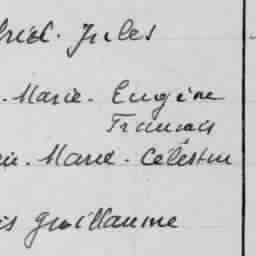 briel. Jules
. Marie. Eugène
Francois
. Marie. Célestin
is Guillaume